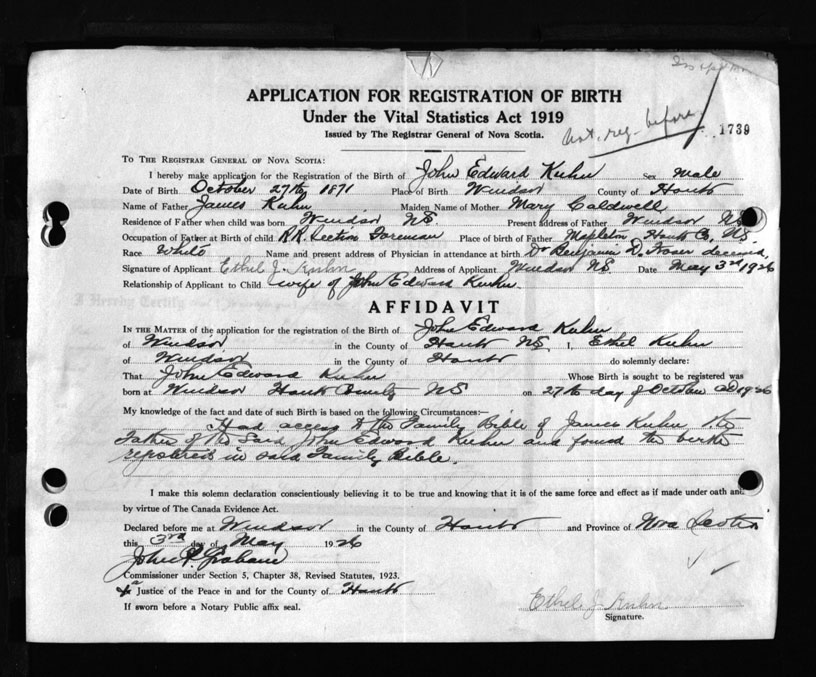 APPLICATION FOR REGISTRATION OF BIRTH
Under the Vital Statistics Act 1919
Issued by The Registrar General of Nova Scotia.
Not. reg. before
1739
TO THE REGISTRAR GENERAL OF NOVA SCOTIA:
I hereby make application for the Registration of the Birth of John Edward Kuhn Sex Male
Date of Birth October 27th 1871 Place of Birth Windsor County of Hants
Name of Father James Kuhn Maiden Name of Mother Mary Caldwell
Residence of Father when child was born Windsor NS Present address of Father Windsor NS
Occupation of Father at Birth of child R.R. Section Foreman Place of birth of Father Mapleton Hants Co, NS.
Race White Name and present address of Physician in attendance at birth Dr Benjamin D. Fraser deceased,
Signature of Applicant Ethel J. Kuhn Address of Applicant Windsor NS Date May 3rd 1926
Relationship of Applicant to Child wife of John Edward Kuhn.
AFFIDAVIT
IN THE MATTER of the application for the registration of the Birth of John Edward Kuhn
of Windsor in the County of Hants NS I, Ethel Kuhn
of Windsor in the County of Hants do solemnly declare:
That John Edward Kuhn Whose Birth is sought to be registered was
born at Windsor Hants County NS on 27th day of October AD 1926
My knowledge of the fact and date of such Birth is based on the following Circumstances:—
Had access to the Family Bible of James Kuhn, the
Father of the said John Edward Kuhn and found the birth
registered in said Family Bible.
I make this solemn declaration conscientiously believing it to be true and knowing that it is of the same force and effect as if made under oath and
by virtue of The Canada Evidence Act.
Declared before me at Windsor in the County of Hants and Province of Nova Scotia
this 3rd day of May 1926
John P. Graham
Commissioner under Section 5, Chapter 38, Revised Statutes, 1923.
a Justice of the Peace in and for the County of Hants
If sworn before a Notary Public affix seal.
Ethel J. Kuhn
Signature.